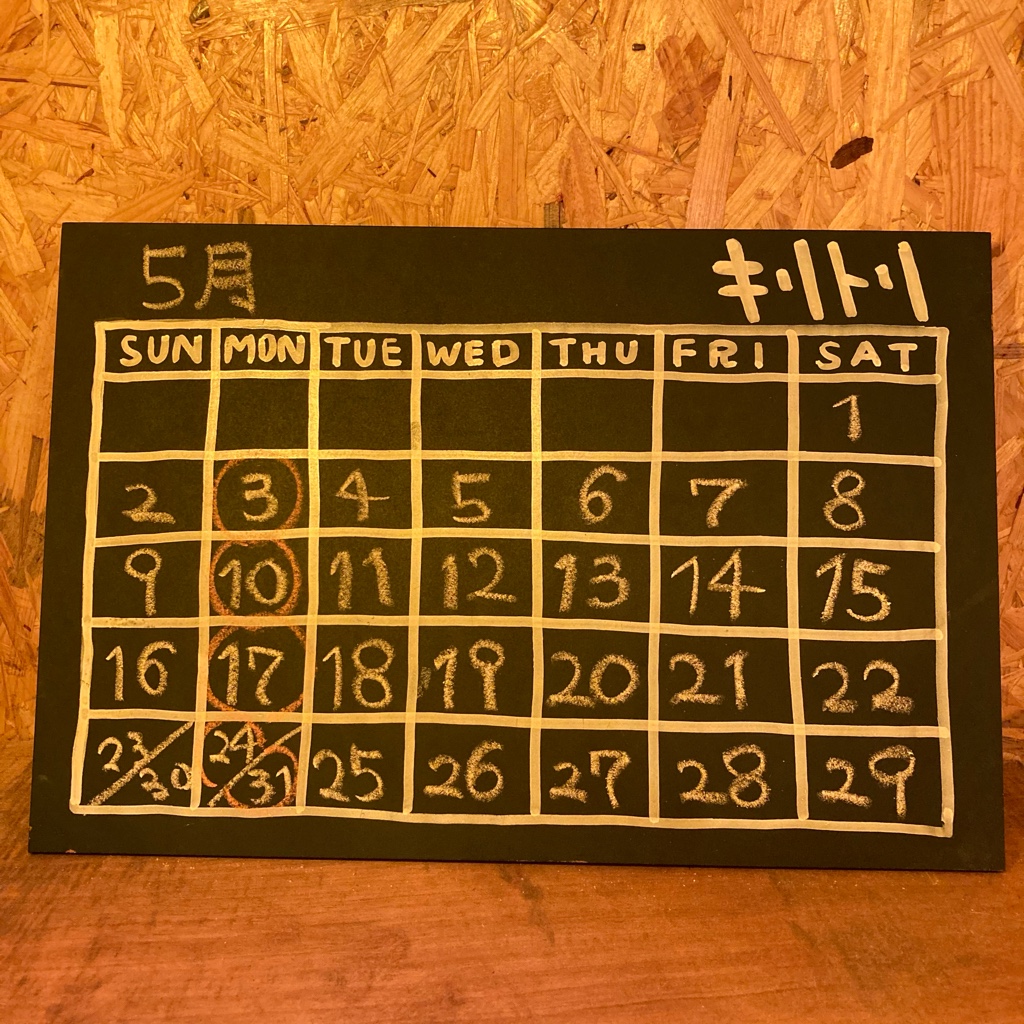 5月 キリトリ
SUN MON TUE WED THU FRI SAT
1
2 3 4 5 6 7 8
9 10 11 12 13 14 15
16 17 18 19 20 21 22
23/30 24/31 25 26 27 28 29